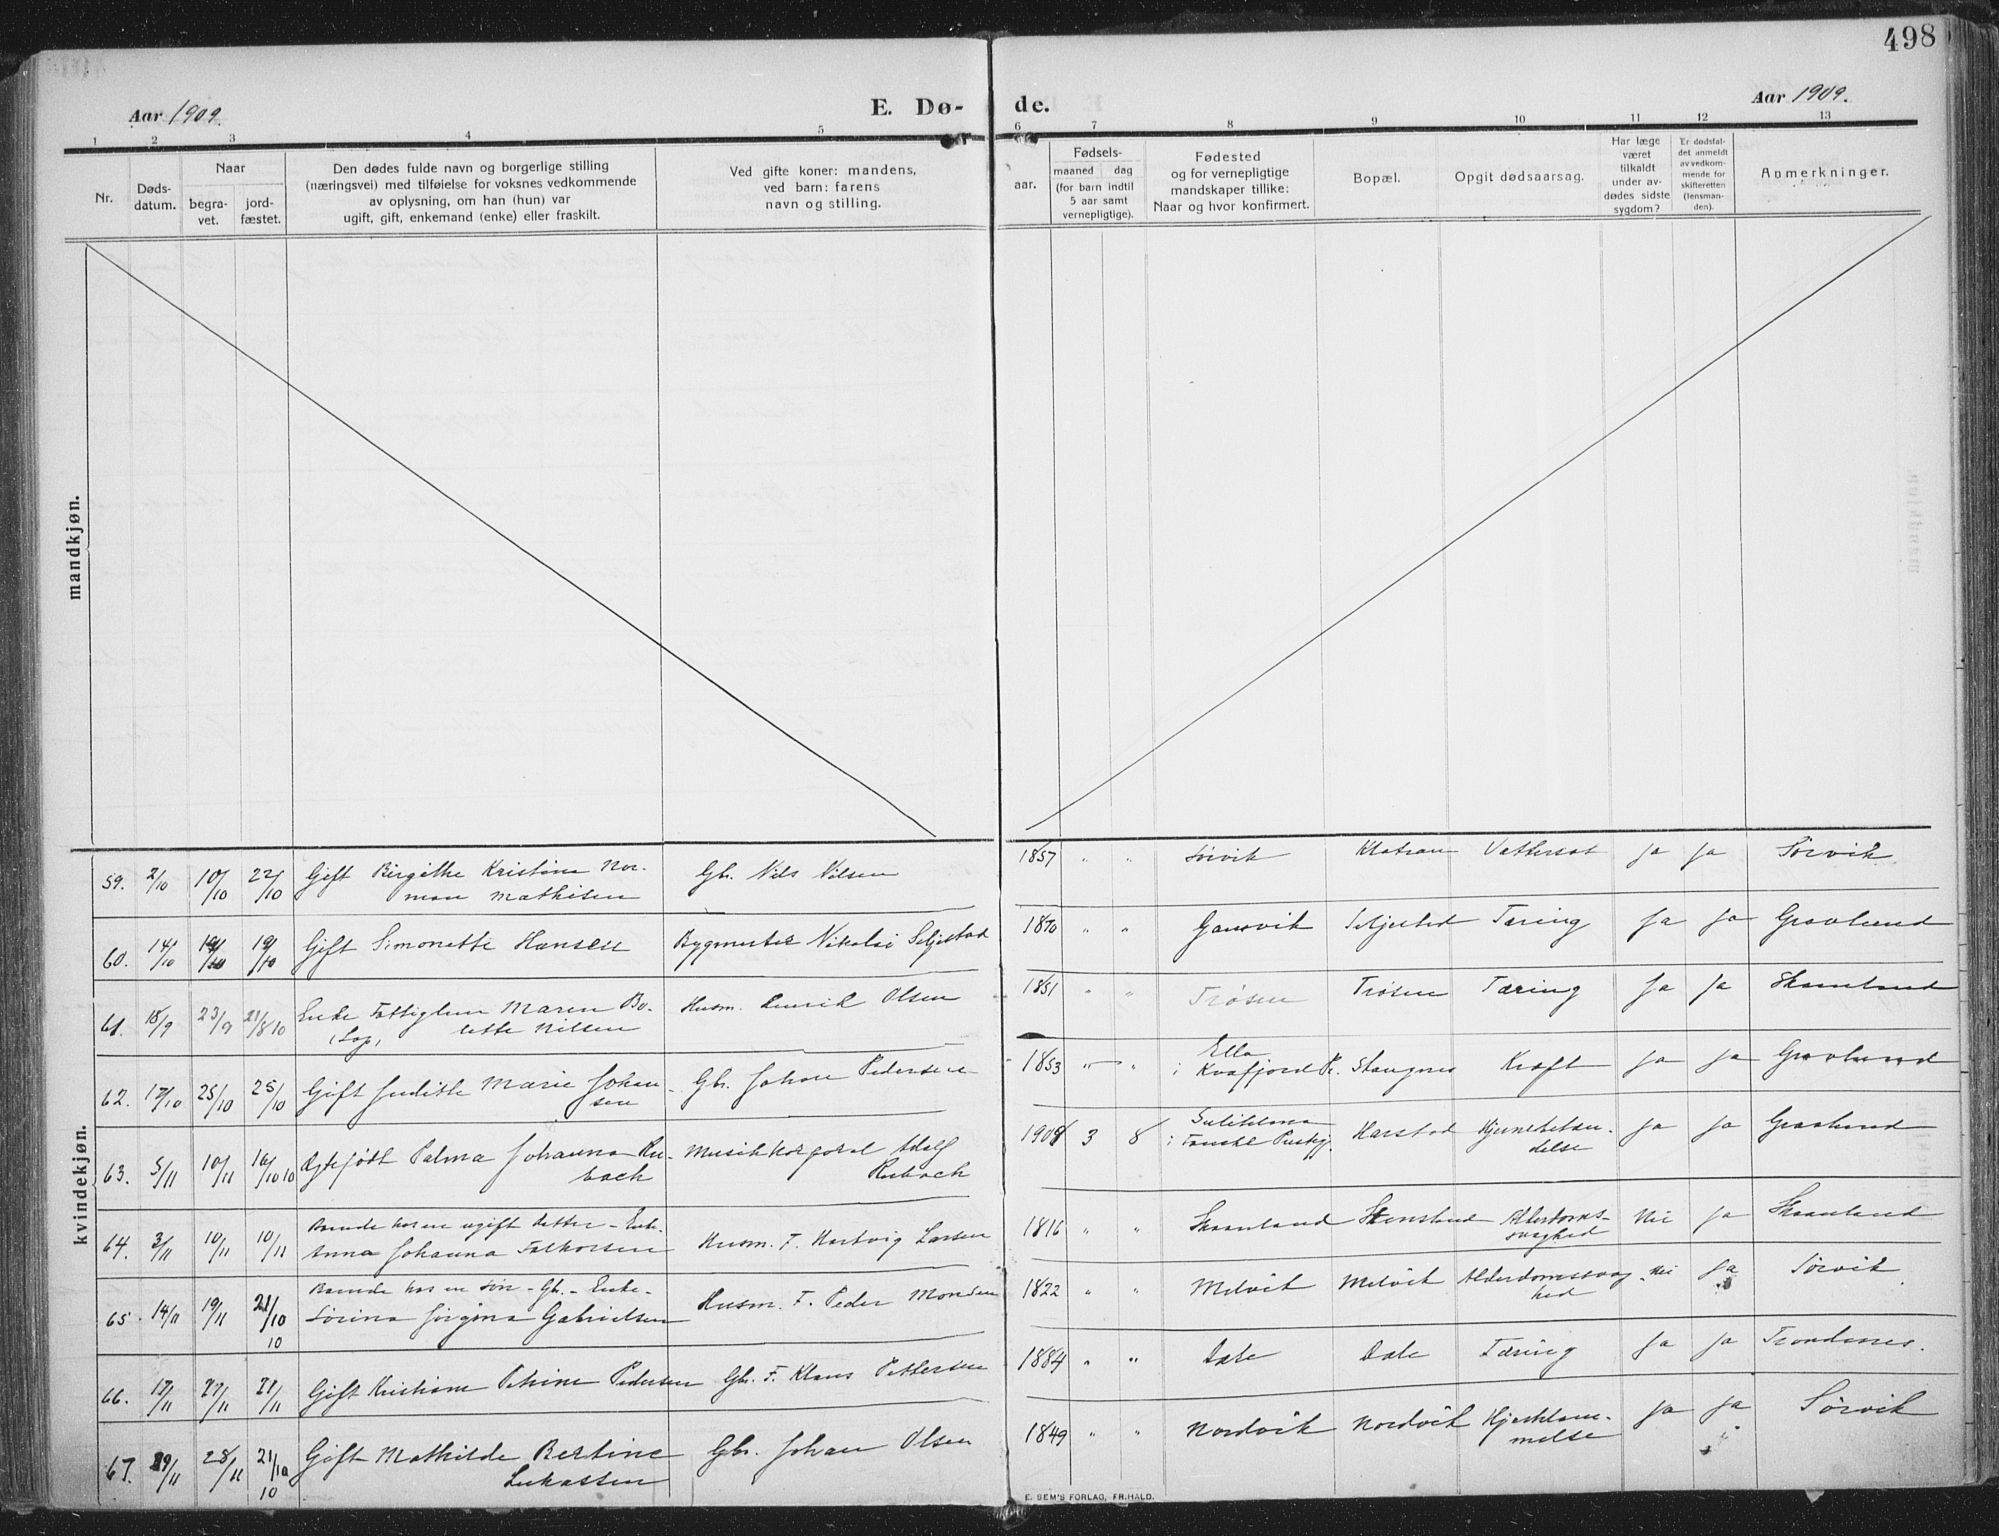 498
Aar 1909.
E. Dø-
de.
Aar 1909.
1 2 3 4 5 6 7 8 9 10 11 12 13
Nr.
Døds-
datum.
Naar
begra-
vet.
jord-
fæstet.
Den dødes fulde navn og borgerlige stilling
(næringsvei) med tilføielse for voksnes vedkommende
av oplysning, om han (hun) var
ugift, gift, enkemand (enke) eller fraskilt.
Ved gifte koner: mandens,
ved barn: farens
navn og stilling.
aar.
Fødsels-
maaned dag
(for barn indtil
5 aar samt
vernepligtige).
Fødested
og for vernepligtige
mandskaper tillike:
Naar og hvor konfirmert.
Bopæl.
Opgit dødsaarsag.
Har læge
været
tilkaldt
under av-
dødes sidste
sygdom?
Er dødsfal-
det anmeldt
av vedkom-
mende for
skifteretten
(lensman-
den).
Anmerkninger.
mandkjøn.
kvindekjøn.
59. 2/10 10/10 22/10 Gift Birgithe Kristine Nor- Gbr. Nils Nilsen 1857 " " Sørvik Vattersot Ja Ja Sørvik
man Mathisen
60. 14/10 19/10 19/10 Gift Simonette Hansen Bygmester Nikolai Seljestad 1870 " " Gansvik Seljestad Tæring Ja Ja Gravlund
61. 18/9 23/9 21/8 10 Enke Fattiglem Maren Bo- Husm. Henrik Olsen 1851 " " Trøsen Trøsen Tæring Ja Ja Skaanland
(Lap) lette Nilsen
62. 17/10 25/10 25/10 Gift Juditte Marie Johan- Gbr. Johan Pedersen 1853 " " Ella
sen i Kvæfjord Pr. Stangnes Kræft Ja Ja Gravlund
63. 5/11 10/11 16/10 10 Ægtefødt Palma Johanna Ru- Musikkorporal Adolf 1908 3 8 Sulitelma
back Ruback i Fauske Harstad Hjernebetæn- Ja Ja Gravlund
delse
64. 3/11 10/11 10/11 Boende hos en ugift datter - Enke
Anna Johanna Falkorsen Husm. F. Hartvig Larsen 1816 " " Skaanland Stensland Alderdoms- Nei Ja Skaanland
svaghed
65. 14/11 19/11 21/10 10 Boende hos en søn - Gbr. - Enke -
Sørina Jørgina Gabrielsen Husm. F. Peder Monsen 1822 " " Melvik Melvik Alderdomssvag- Nei Ja Sørvik
hed
66. 17/11 27/11 27/11 Gift Kristiane Petrine Pedersen Gbr. F. Klaus Pettersen 1884 " " Dale Dale Tæring Ja Ja Trondenes.
67. 19/11 28/11 21/10 10 Gift Mathilde Bertine Gbr. Johan Olsen 1849 " " Nordvik Nordvik Hjertelam- Ja Ja Sørvik
Lukassen melse
E. SEM'S FORLAG, FR.HALD.